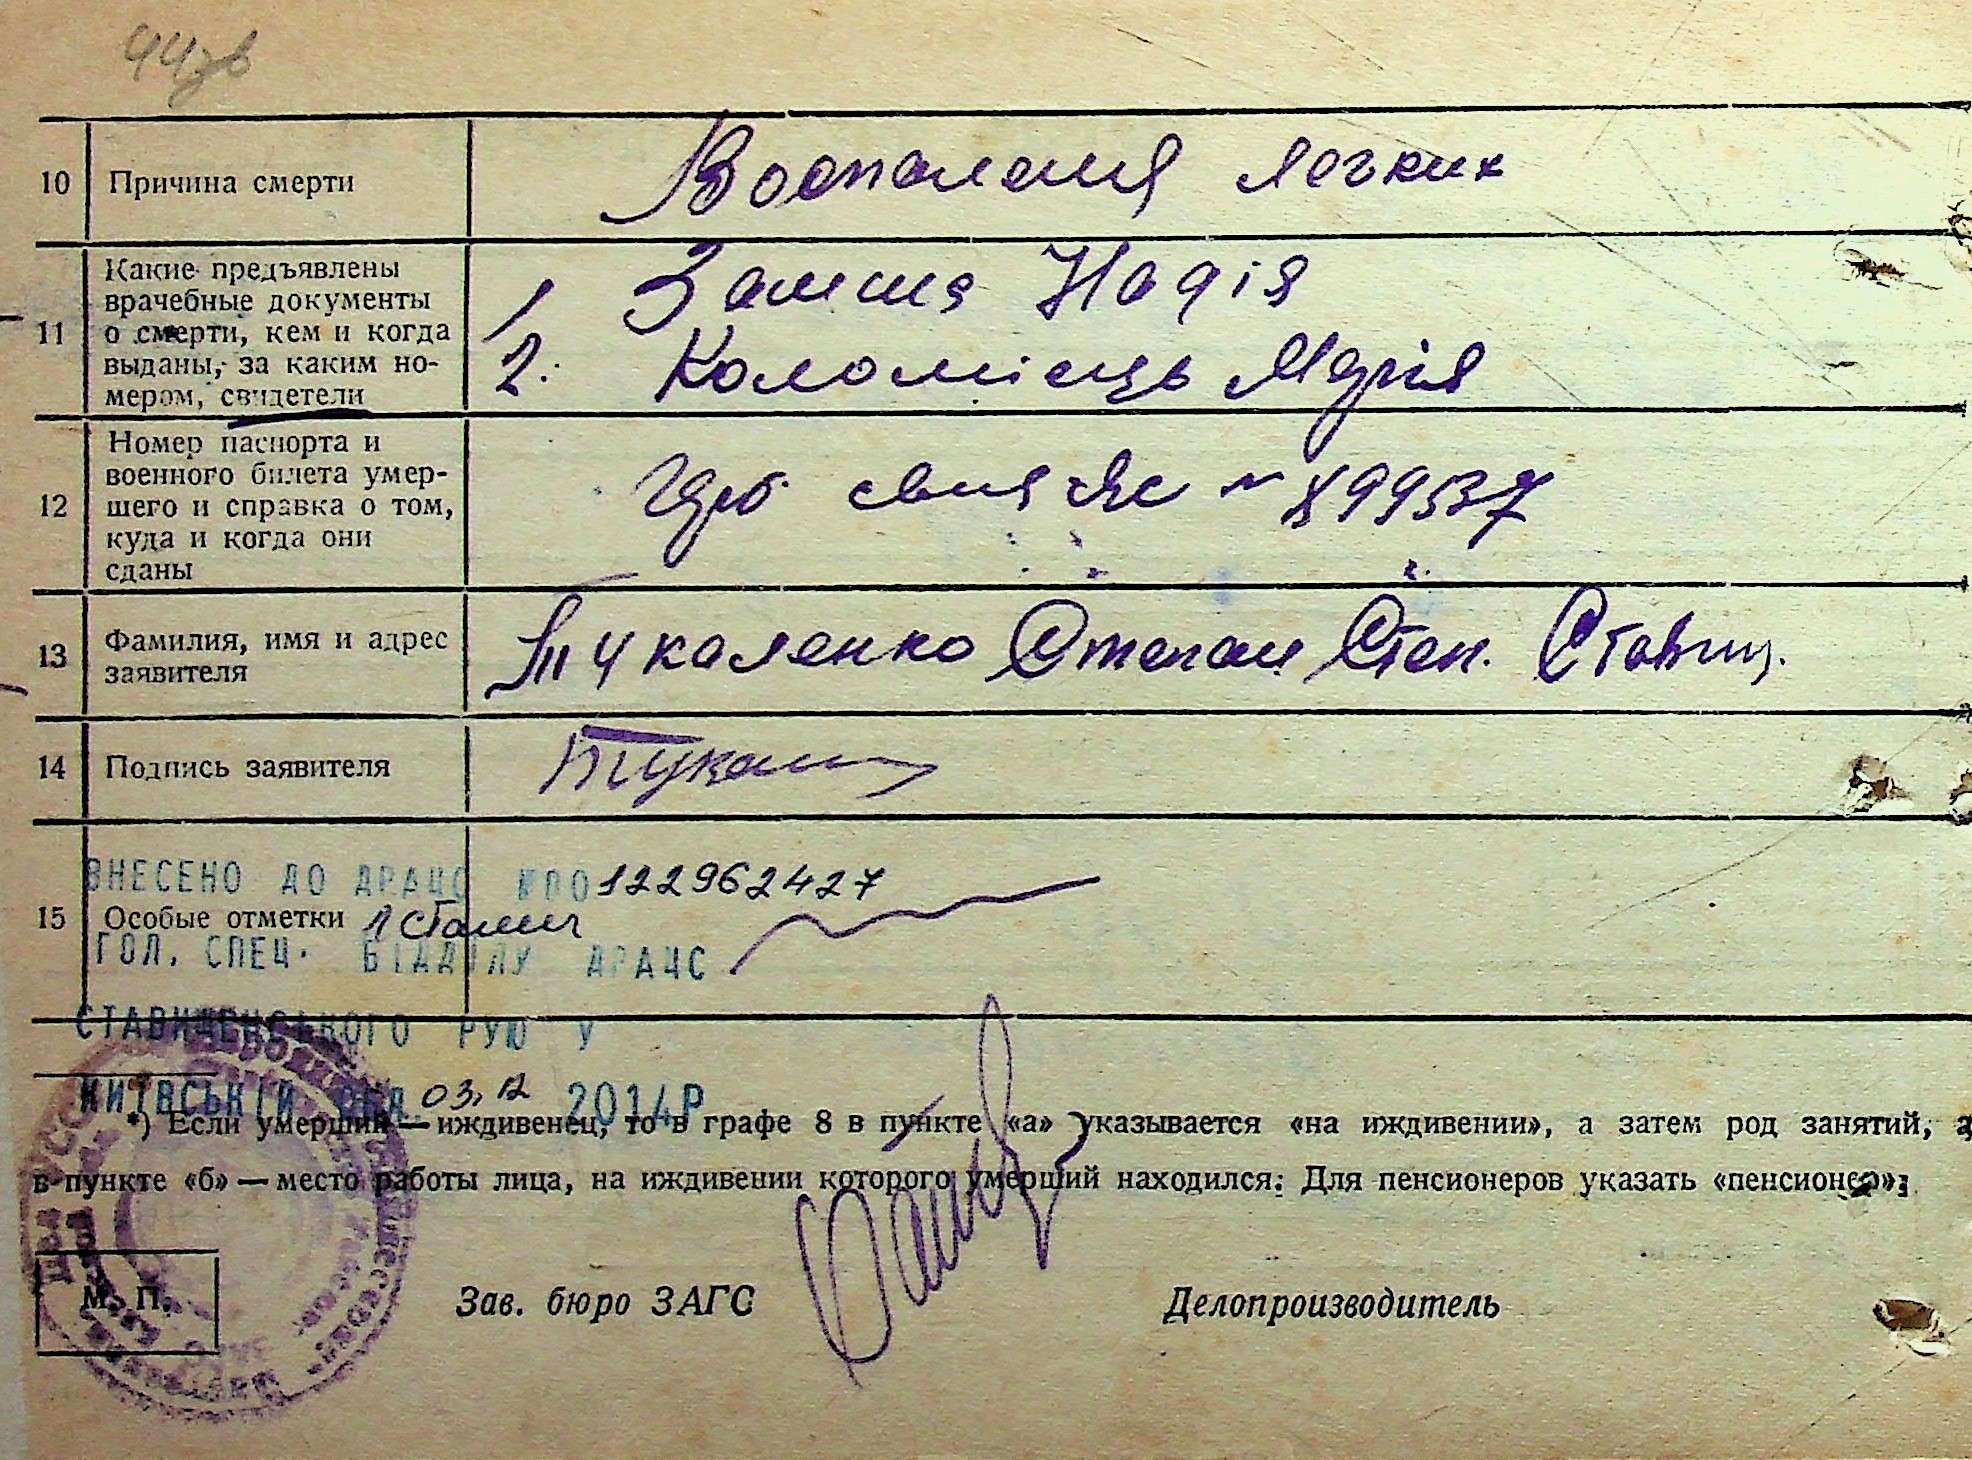 44зв
10 Причина смерти Воспаления легких
11 Какие предъявлены врачебные документы о смерти, кем и когда выданы, за каким номером, свидетели
1 Надія
2. Коломієць Марія
12 Номер паспорта и военного билета умершего и справка о том, куда и когда они сданы
13 Фамилия, имя и адрес заявителя Тукаленко Степан Степ. Ставищ.
14 Подпись заявителя
ВНЕСЕНО ДО ДРАЦС 122962427
15 Особые отметки
ГОЛ. СПЕЦ. ВІДДІЛУ ДРАЦС
СТАВИЩЕНСЬКОГО РУЮ У
КИЇВСЬКІЙ ОБЛ. 03.12 2014Р
*) Если умерший — иждивенец, то в графе 8 в пункте «а» указывается «на иждивении», а затем род занятий, а
в пункте «б» — место работы лица, на иждивении которого умерший находился. Для пенсионеров указать «пенсионер».
М. П. Зав. бюро ЗАГС Делопроизводитель